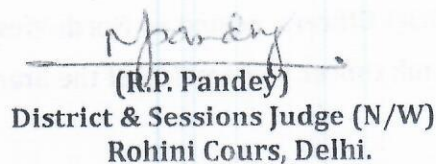 NPandey
(R.P. Pandey)
District & Sessions Judge (N/W)
Rohini Cours, Delhi.